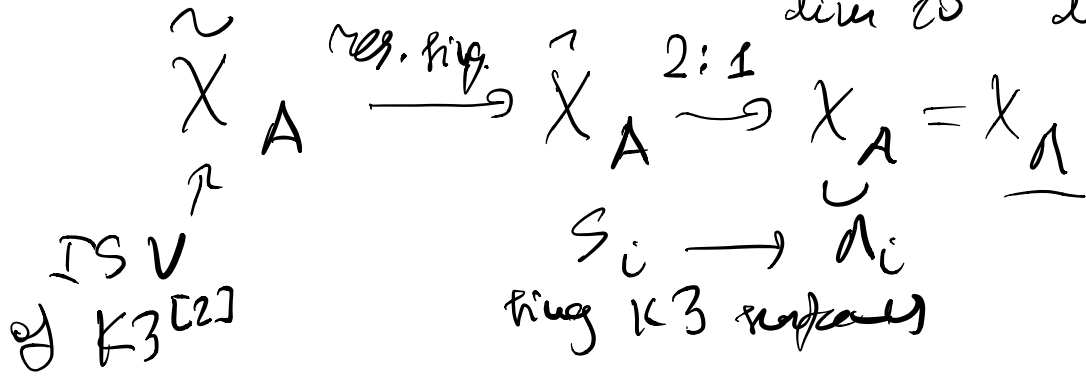 dim 20
X̃_A res. sing. ⟶ X̂_A 2:1 ⟶ X_A = X_Λ
↑ ∪
ISV S_i ⟶ Λ_i
of K3^[2] sing K3 surfaces